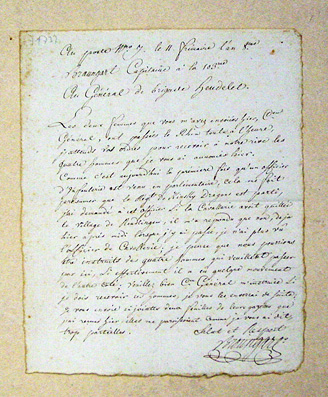 Au poste N.o 7. le 11 Frimaire l'an 8me
Capitaine à la 103me
Au Général de brigade Heudelet
Les deux femmes que vous m'avez envoyées hier, Cen
Général, ont passées le Rhin toute à l'heure,
j'attends vos ordres pour recevoir à notre rive les
quatre hommes que je vous ai annoncés hier.
Comme c'est aujourd'hui la première fois qu'un officier
d'infanterie est venu en parlementaire, cela me fait
que le Regt de Dragons est parti
j'ai demandé à cet officier si la Cavallerie avait quitté
le village de il m'a repondu que non, deja
hier après midi lorsque j'y ai passé, je n'ai plus vu
l'officier de Cavallerie, je pense que nous pourrions
être instruits des quatre hommes qui veuillent passer
par ici, si effectivement il y a eu quelque mouvement
de l'autre coté; Veuillez bien Cen Général m'instruire si je
dois recevoir ces hommes, je vous les enverrai de suite,
je vous envoie ci jointes deux feuilles de leur papier qu'on
m'a remis hier, elles ne paraissent comme je vous ai dit
trop partielles. Salut et Respect